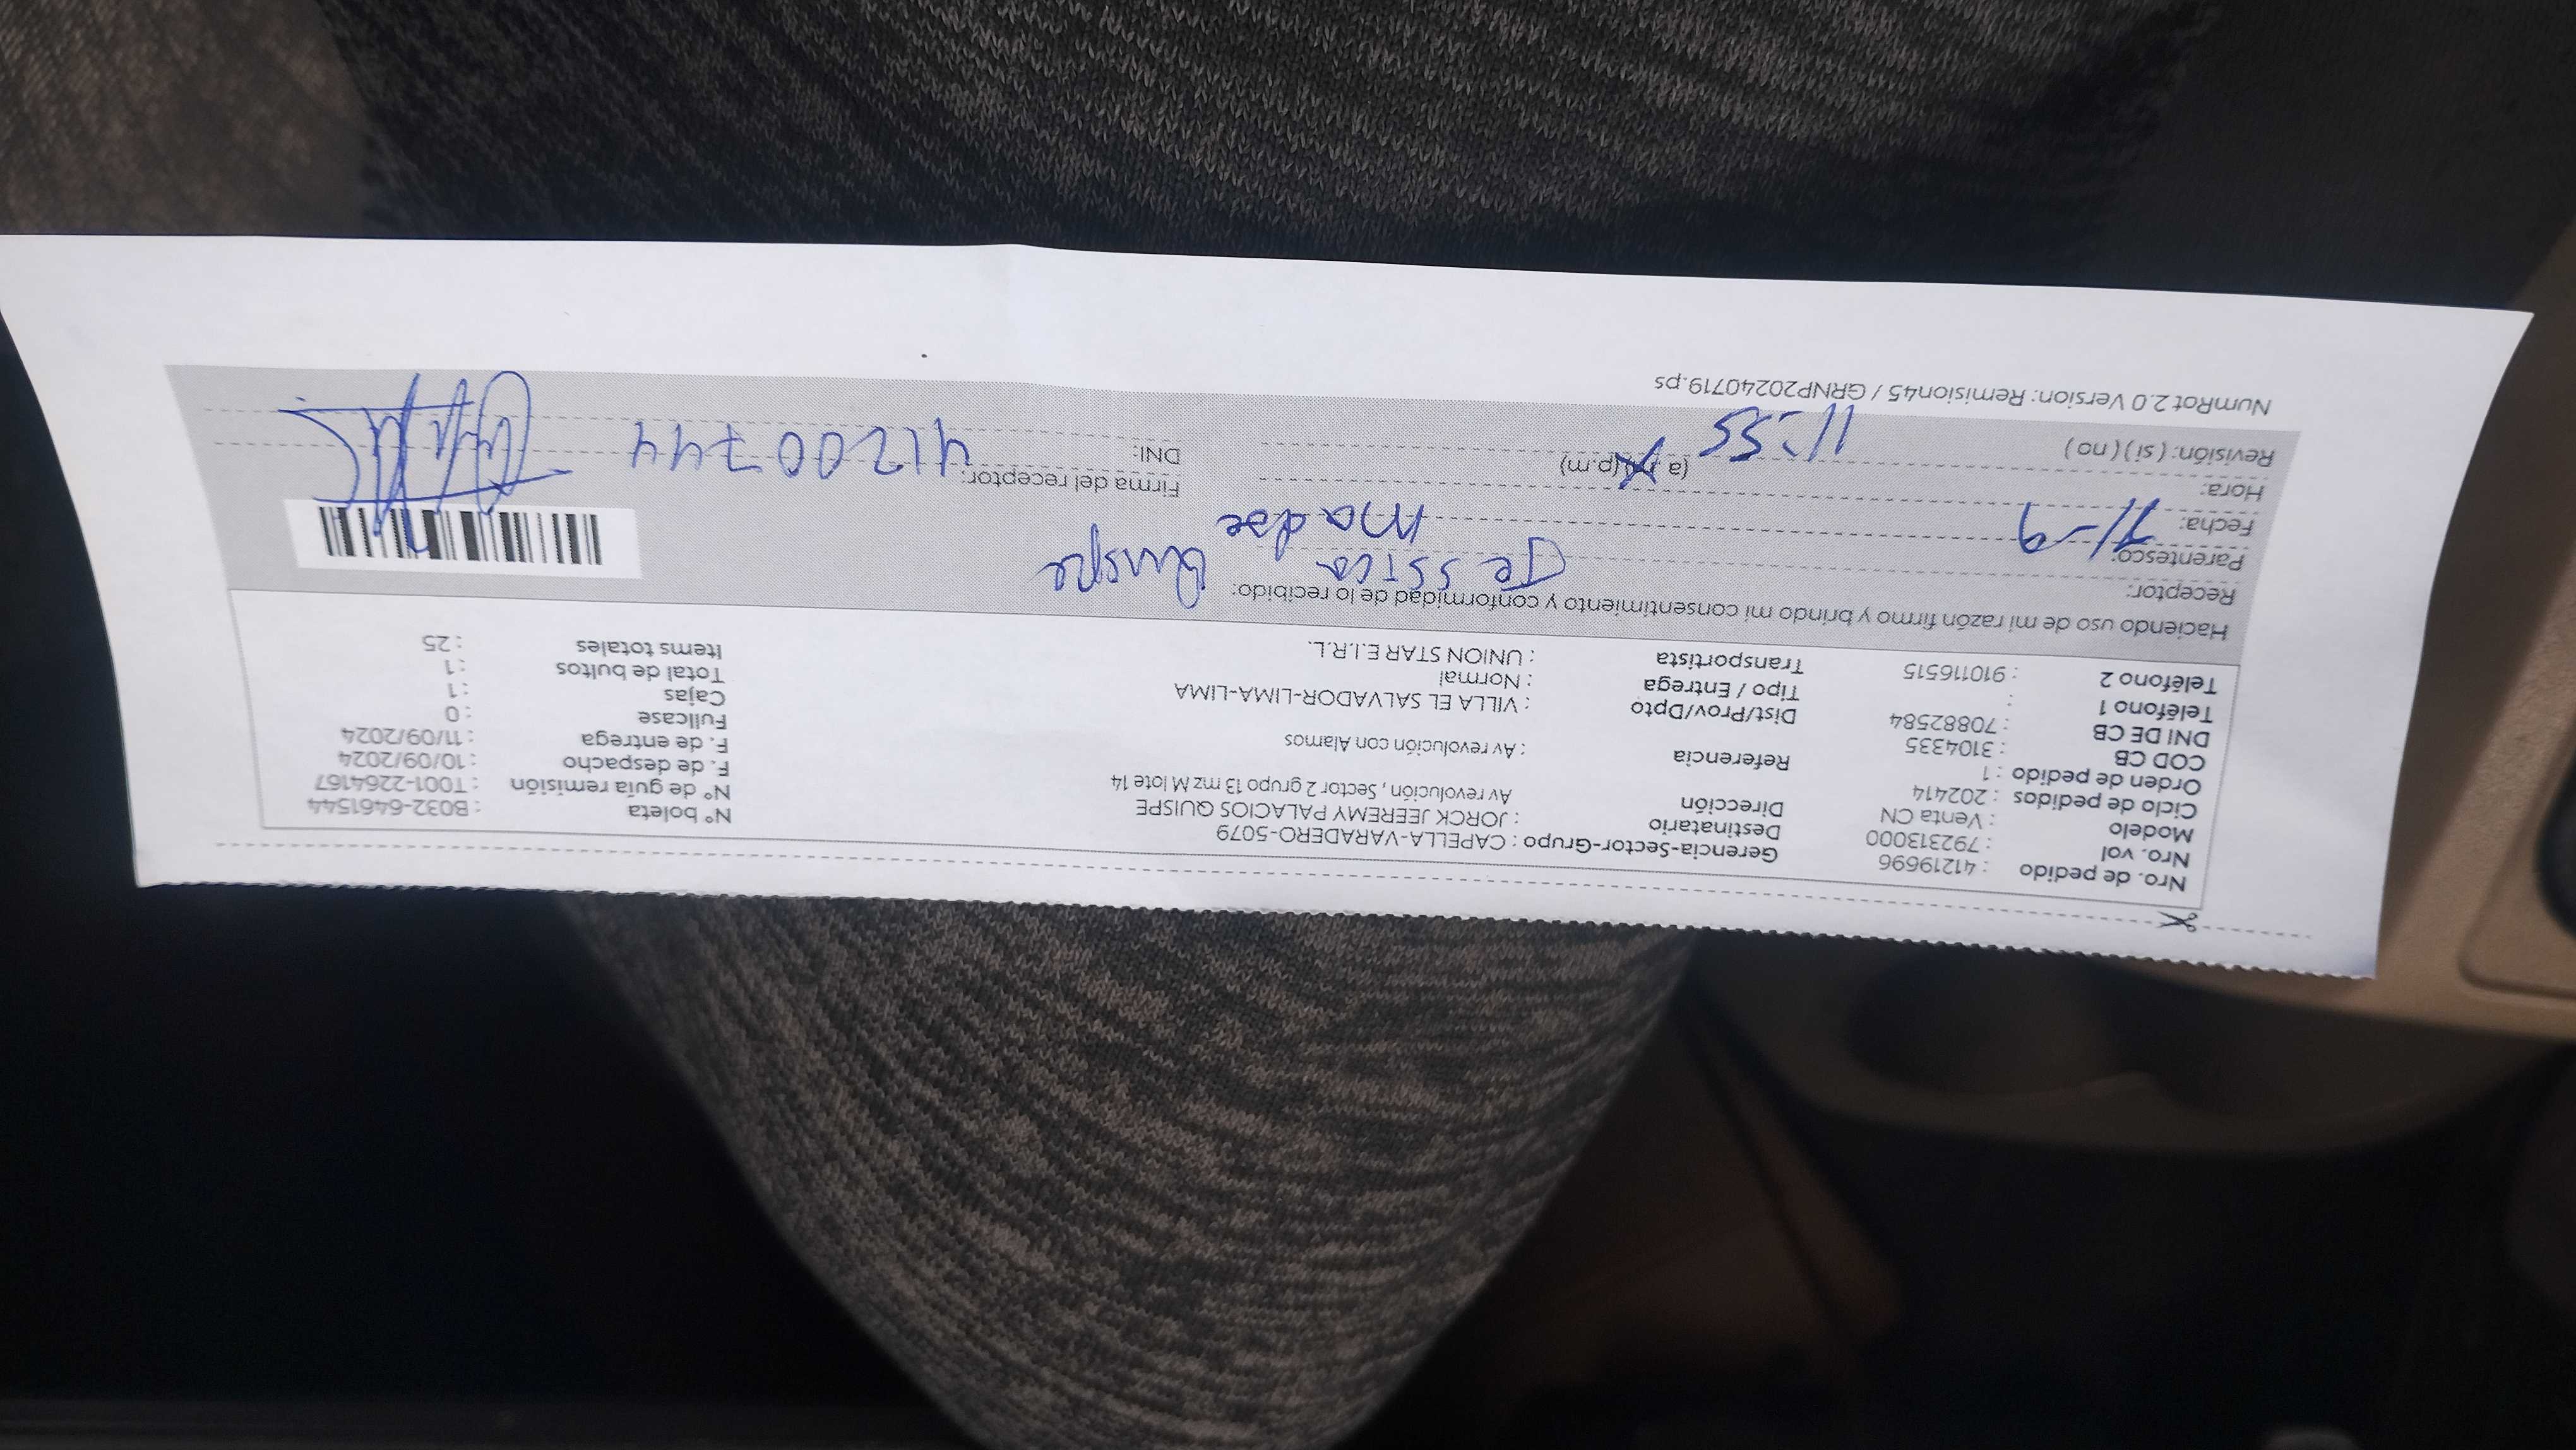 Nro. de pedido : 41219696
Nro. vol : 792313000
Modelo : Venta CN
Ciclo de pedidos : 202414
Orden de pedido : 1
COD CB : 3104335
DNI DE CB : 70882584
Teléfono 1 :
Teléfono 2 : 910116515
Gerencia-Sector-Grupo : CAPELLA-VARADERO-5079
Destinatario : JORCK JEEREMY PALACIOS QUISPE
Dirección Av revolución , Sector 2 grupo 13 mz M lote 14
Referencia : Av revolución con Alamos
Dist/Prov/Dpto : VILLA EL SALVADOR-LIMA-LIMA
Tipo / Entrega : Normal
Transportista : UNION STAR E.I.R.L.
N° boleta : B032-6461544
N° de guía remisión : T001-2264167
F. de despacho : 10/09/2024
F. de entrega : 11/09/2024
Fullcase : 0
Cajas : 1
Total de bultos : 1
Items totales : 25
Haciendo uso de mi razón firmo y brindo mi consentimiento y conformidad de lo recibido:
Receptor: Jessica Quispe
Parentesco: madre
Fecha: 11-9
Hora: 11:55 (a.m) (p.m)
Revisión: ( si ) ( no )
Firma del receptor:
DNI: 41200744
NumRot 2.0 Version: Remision45 / GRNP20240719.ps